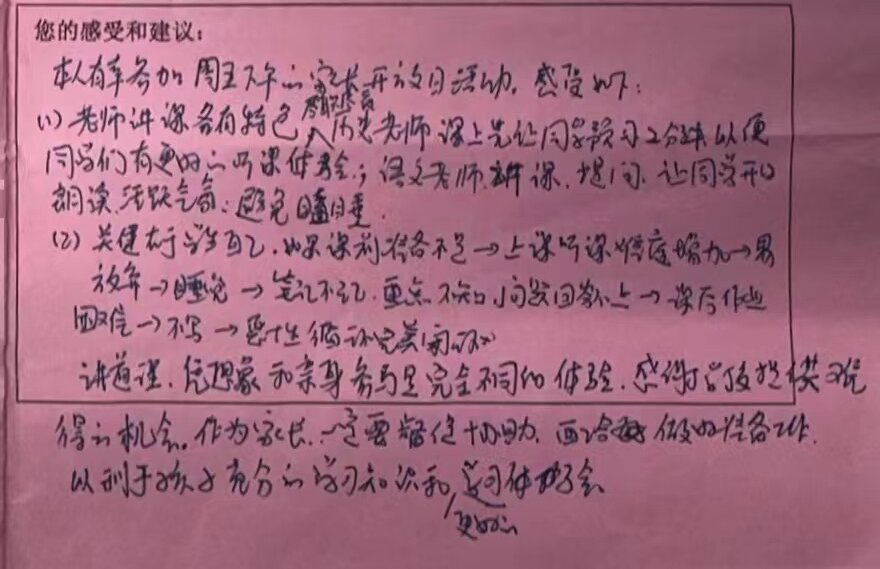 您的感受和建议：
本人有幸参加周五下午的家长开放日活动，感受如下：
(1) 老师讲课各有特色，尽职尽责 历史老师课上先让同学预习2分钟以便
同学们有更好的听课体验；语文老师讲课，提问，让同学开口
朗读，活跃气氛，避免瞌睡。
(2) 关健在于学生自己，如果课前准备不足→上课听课难度增加→易
放弃→睡觉→笔记不记，重点不知，问题回答不上→课后作业
困难→不写→恶性循环完美闭环
讲道理，凭想象和亲身参与是完全不同的体验，感谢学校提供难
得的机会。作为家长，一定要督促协助，配合做好准备工作，
以利于孩子充分的学习知识和学习体验
更好的